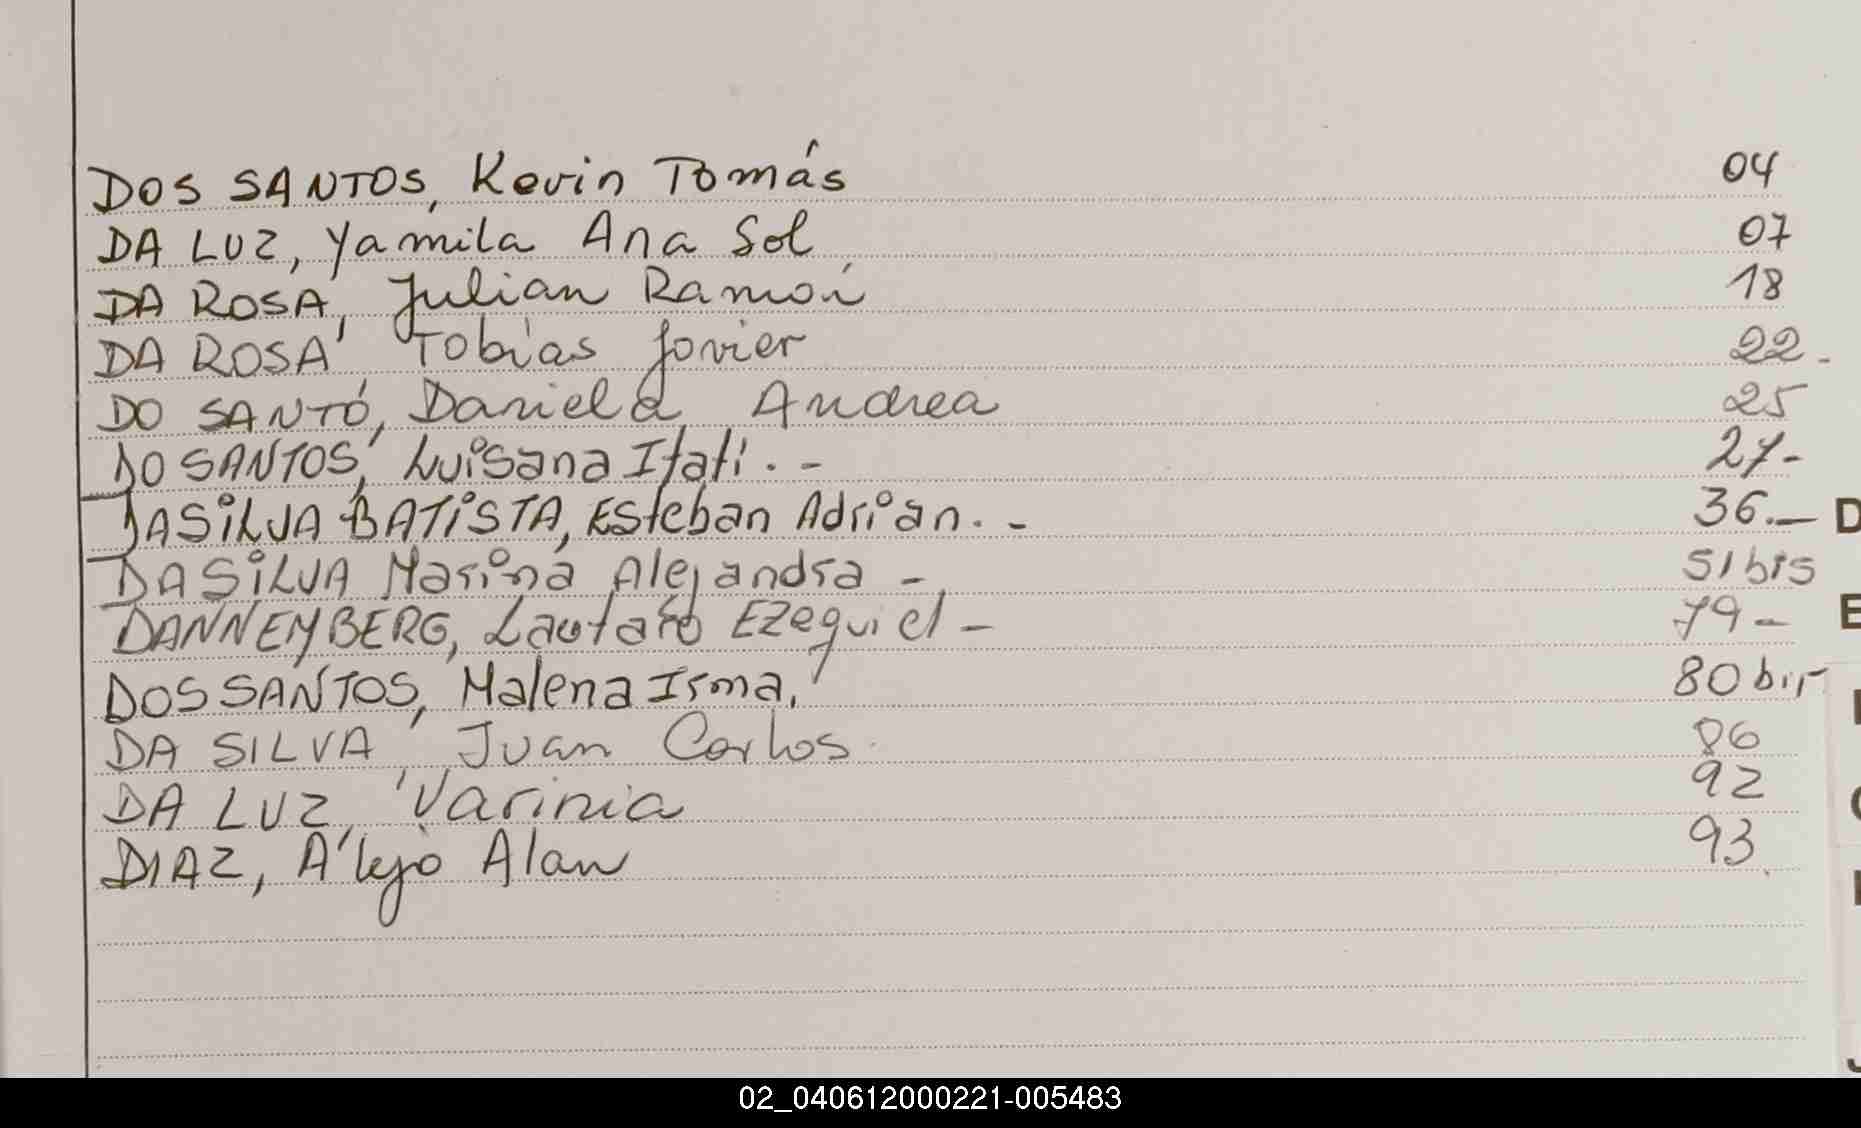 DOS SANTOS, Kevin Tomás 04
DA LUZ, Yamila Ana Sol 07
DA ROSA, Julian Ramón 18
DA ROSA, Tobías Javier 22.-
DO SANTÓ, Daniela Andrea 25
DO SANTOS, Luisana Itatí.- 27-
DASILVA BATISTA, Esteban Adrian.- 36.- D
DASILVA Marina Alejandra - 51 bis
DANNEMBERG, Lautaro Ezequiel - 79- E
DOS SANTOS, Malena Irma. 80 bis
DA SILVA, Juan Carlos. 86
DA LUZ, Varinia 92
DIAZ, Alejo Alan 93
02_040612000221-005483